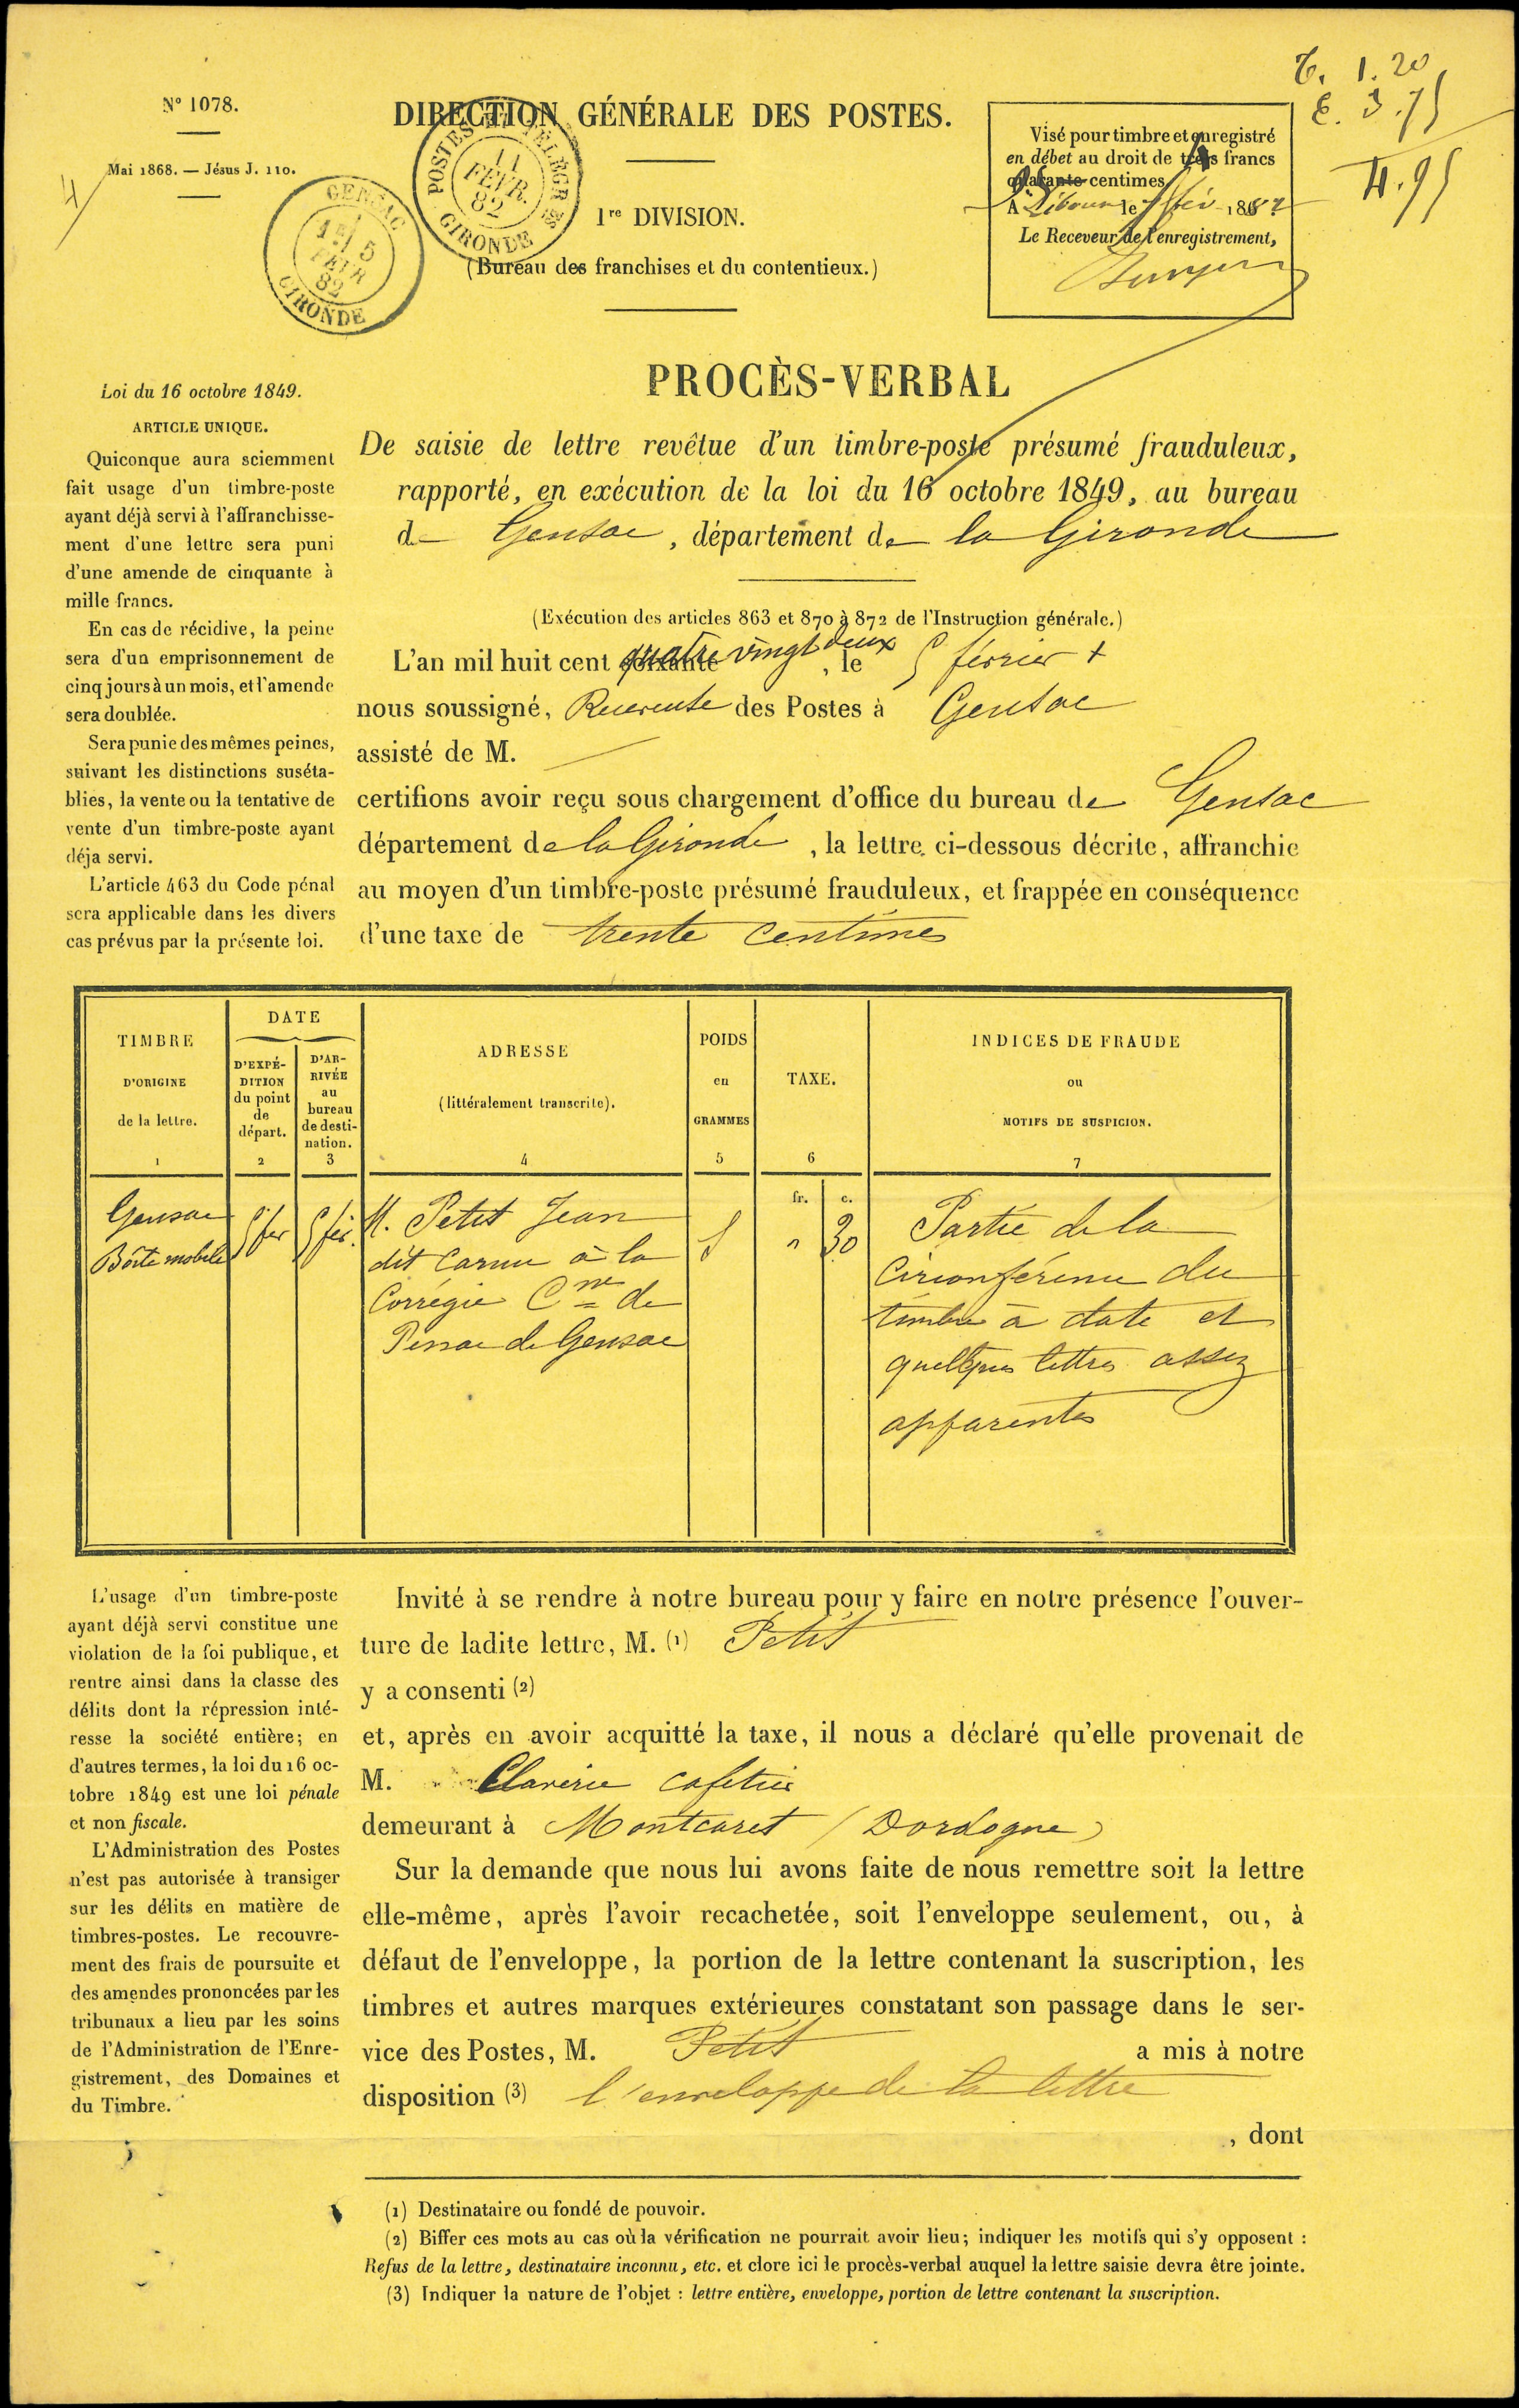 T. 1.20
E. 3.75
4.95
N° 1078.
Mai 1868. — Jésus J. 110.
4
DIRECTION GÉNÉRALE DES POSTES.
POSTES ET TÉLÉGR
11
FÉVR.
82
GIRONDE
GENSAC
5
FEVR
82
GIRONDE
1re DIVISION.
(Bureau des franchises et du contentieux.)
Visé pour timbre et enregistré
en débet au droit de trois francs
quarante centimes
A Libourne le fév 1882
Le Receveur de l'enregistrement,
PROCÈS-VERBAL
De saisie de lettre revêtue d'un timbre-poste présumé frauduleux,
rapporté, en exécution de la loi du 16 octobre 1849, au bureau
de Gensac, département de la Gironde
(Exécution des articles 863 et 870 à 872 de l'Instruction générale.)
L'an mil huit cent soixante quatre vingt deux, le 5 février
nous soussigné, Receveuse des Postes à Gensac
assisté de M.
certifions avoir reçu sous chargement d'office du bureau de Gensac
département de la Gironde, la lettre ci-dessous décrite, affranchie
au moyen d'un timbre-poste présumé frauduleux, et frappée en conséquence
d'une taxe de trente centimes
Loi du 16 octobre 1849.
ARTICLE UNIQUE.
Quiconque aura sciemment
fait usage d'un timbre-poste
ayant déjà servi à l'affranchisse-
ment d'une lettre sera puni
d'une amende de cinquante à
mille francs.
En cas de récidive, la peine
sera d'un emprisonnement de
cinq jours à un mois, et l'amende
sera doublée.
Sera punie des mêmes peines,
suivant les distinctions suséta-
blies, la vente ou la tentative de
vente d'un timbre-poste ayant
déja servi.
L'article 463 du Code pénal
sera applicable dans les divers
cas prévus par la présente loi.
TIMBRE
D'ORIGINE
de la lettre.
1
DATE
D'EXPÉ-
DITION
du point
de
départ.
2
D'AR-
RIVÉE
au
bureau
de desti-
nation.
3
ADRESSE
(littéralement transcrite).
4
POIDS
en
GRAMMES
5
TAXE.
6
INDICES DE FRAUDE
ou
MOTIFS DE SUSPICION.
7
Gensac
Boîte mobile
5 fev
5 fév.
M. Petit Jean
dit Carme à la
Corrégie Cne de
Pessac de Gensac
5
fr. c.
" 30
Partie de la
Circonférence du
timbre à date et
quelques lettres assez
apparentes
L'usage d'un timbre-poste
ayant déjà servi constitue une
violation de la foi publique, et
rentre ainsi dans la classe des
délits dont la répression inté-
resse la société entière; en
d'autres termes, la loi du 16 oc-
tobre 1849 est une loi pénale
et non fiscale.
L'Administration des Postes
n'est pas autorisée à transiger
sur les délits en matière de
timbres-postes. Le recouvre-
ment des frais de poursuite et
des amendes prononcées par les
tribunaux a lieu par les soins
de l'Administration de l'Enre-
gistrement, des Domaines et
du Timbre.
Invité à se rendre à notre bureau pour y faire en notre présence l'ouver-
ture de ladite lettre, M. (1) Petit
y a consenti (2)
et, après en avoir acquitté la taxe, il nous a déclaré qu'elle provenait de
M. Claverie cafetier
demeurant à Montcaret (Dordogne)
Sur la demande que nous lui avons faite de nous remettre soit la lettre
elle-même, après l'avoir recachetée, soit l'enveloppe seulement, ou, à
défaut de l'enveloppe, la portion de la lettre contenant la suscription, les
timbres et autres marques extérieures constatant son passage dans le ser-
vice des Postes, M. Petit a mis à notre
disposition (3) l'enveloppe de la lettre
, dont
(1) Destinataire ou fondé de pouvoir.
(2) Biffer ces mots au cas où la vérification ne pourrait avoir lieu; indiquer les motifs qui s'y opposent :
Refus de la lettre, destinataire inconnu, etc. et clore ici le procès-verbal auquel la lettre saisie devra être jointe.
(3) Indiquer la nature de l'objet : lettre entière, enveloppe, portion de lettre contenant la suscription.